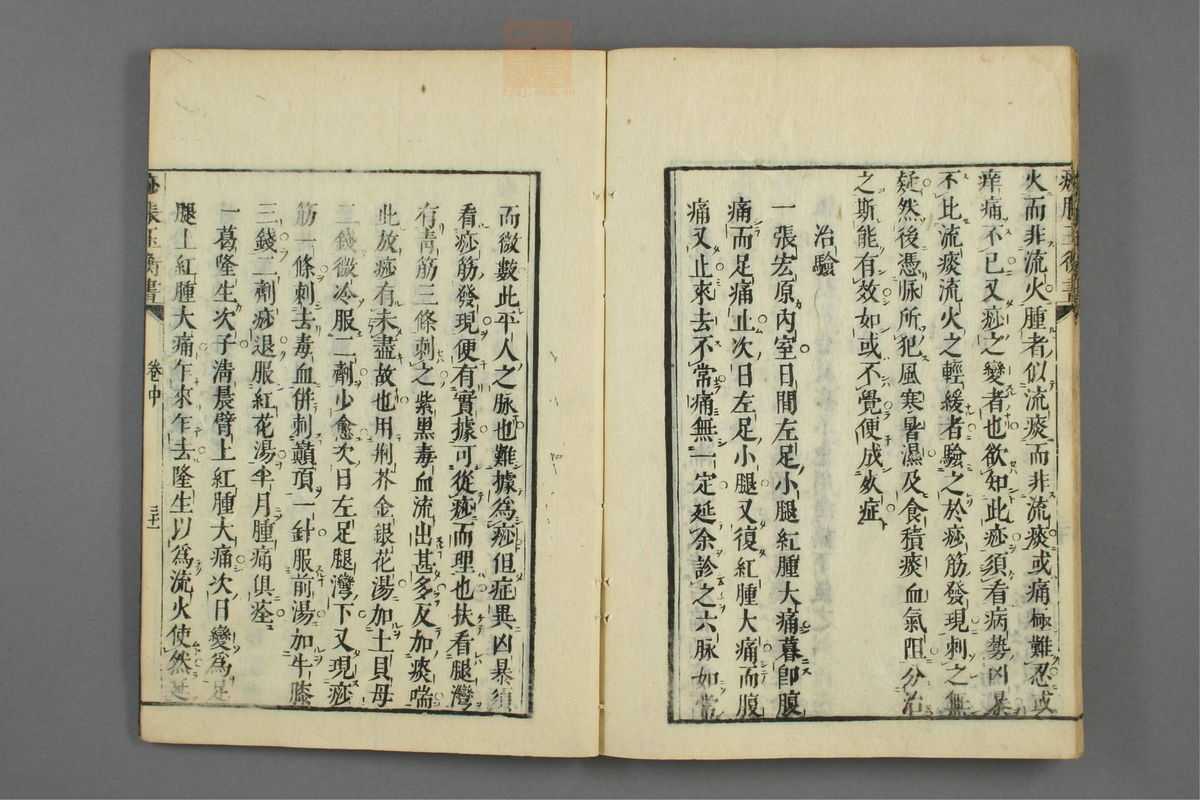 火而非流火腫者似流痰而非流痰或痛極難忍或
痒痛不已又痧之變者也欲知此痧須看病勢凶暴
不比流痰流火之輕緩者驗之於痧筋發現刺之無
疑然後憑脉所犯風寒暑濕及食積痰血氣阻分治
之斯能有效如或不覺便成欬症
治驗
一張宏原内室日間左足小腿紅腫大痛暮卽腹
痛而足痛止次日左足小腿又復紅腫大痛而腹
痛又止來去不常痛無一定延余診之六脉如常
而微數此平人之脉也難據爲痧但症異凶暴須
看痧筋發現便有實據可從痧而理也扶看腿灣
有青筋三條刺之紫黑毒血流出甚多反加痰喘
此放痧有未盡故也用荆芥金銀花湯加土貝母
二錢微冷服二劑少愈次日左足腿灣下又現痧
筋一條刺去毒血併刺巔頂一針服前湯加牛膝
三錢二劑痧退服紅花湯半月腫痛俱痊
一葛隆生次子清晨臂上紅腫大痛次日變爲足
腿上紅腫大痛乍來乍去隆生以爲流火使然延
痧脹玉衡書
卷中
三十一
zyqj.com.cn